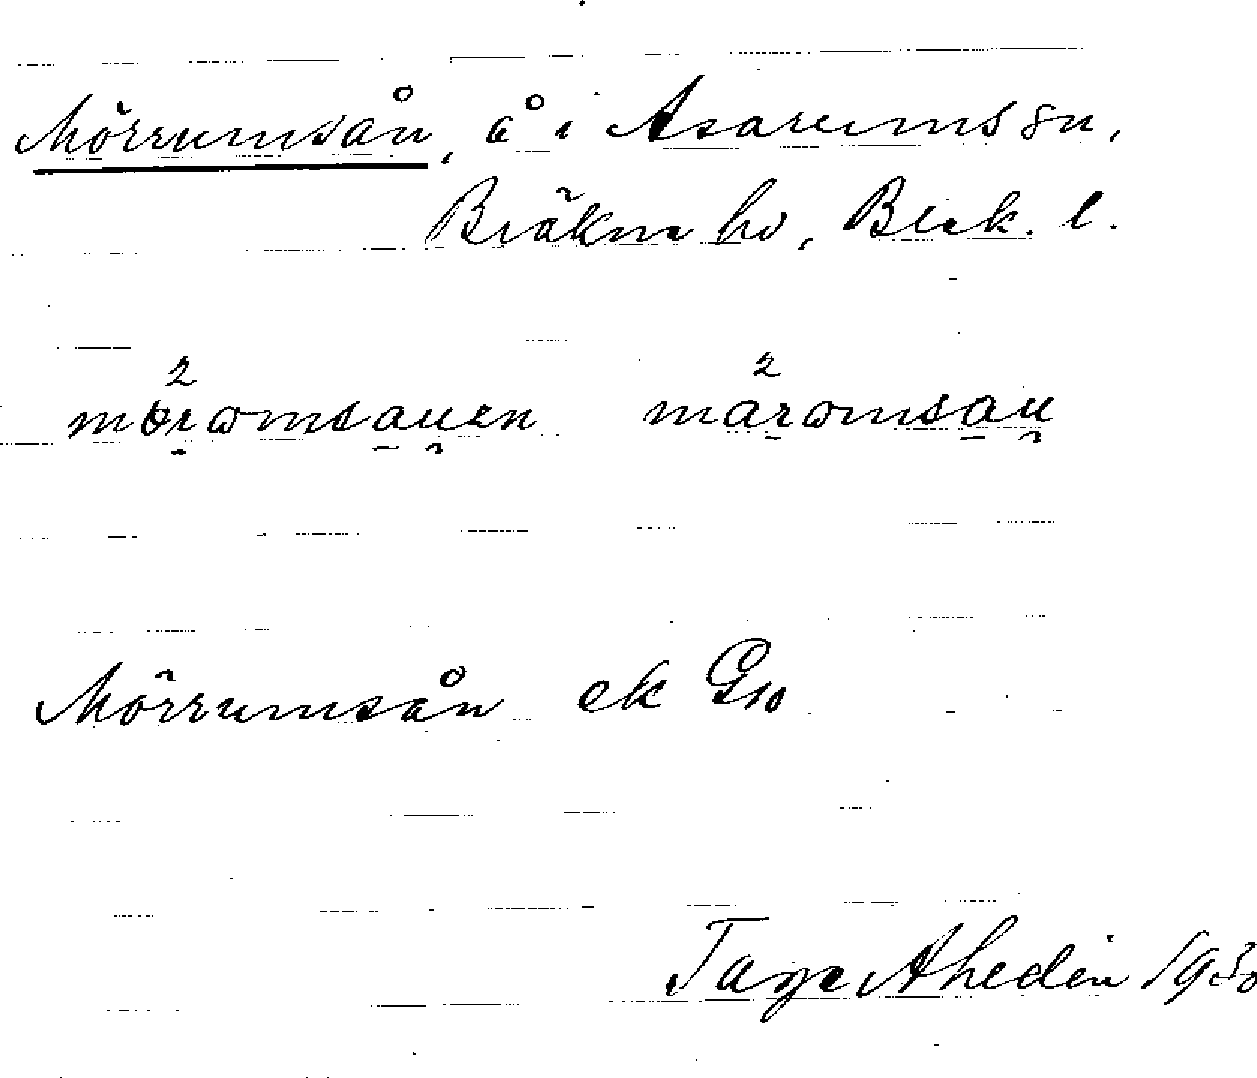 Mörrumsån, å i Asarums sn,
Bräkne hd, Blek. l.
2 2
mörωmsa̠ṷen märωmsa̠ṷ
Mörrumsån ek G10
Tage Ahedin 1930